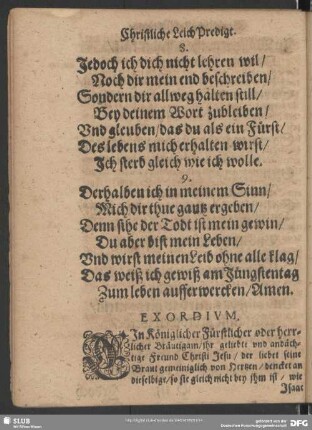 Christliche Leich Predigt.
8.
Jedoch ich dich nicht lehren wil/
Noch dir mein end beschreiben/
Sondern dir allweg halten still/
Bey deinem Wort zubleiben/
Vnd gleuben/das du als ein Fürst/
Des lebens mich erhalten wirst/
Ich sterb gleich wie ich wolle.
9.
Derhalben ich in meinem Sinn/
Mich dir thue gantz ergeben/
Denn sihe der Todt ist mein gewin/
Du aber bist mein Leben/
Vnd wirst meinen Leib ohne alle klag/
Das weiß ich gewiß am Jüngstentag
Zum leben aufferwercken/Amen.
EXORDIVM,
EIn Königlicher Fürstlicher oder herr-
licher Bräutigam/ihr geliebte vnd andäch-
tige Freund Christi Jesu/ der liebet seine
Braut gemeiniglich von Hertzen/ dencket an
dieselbige/so sie gleich nicht bey ihm ist / wie
Isaac
SLUB
Wir führen Wissen.
gefördert von der
Deutschen Forschungsgemeinschaft